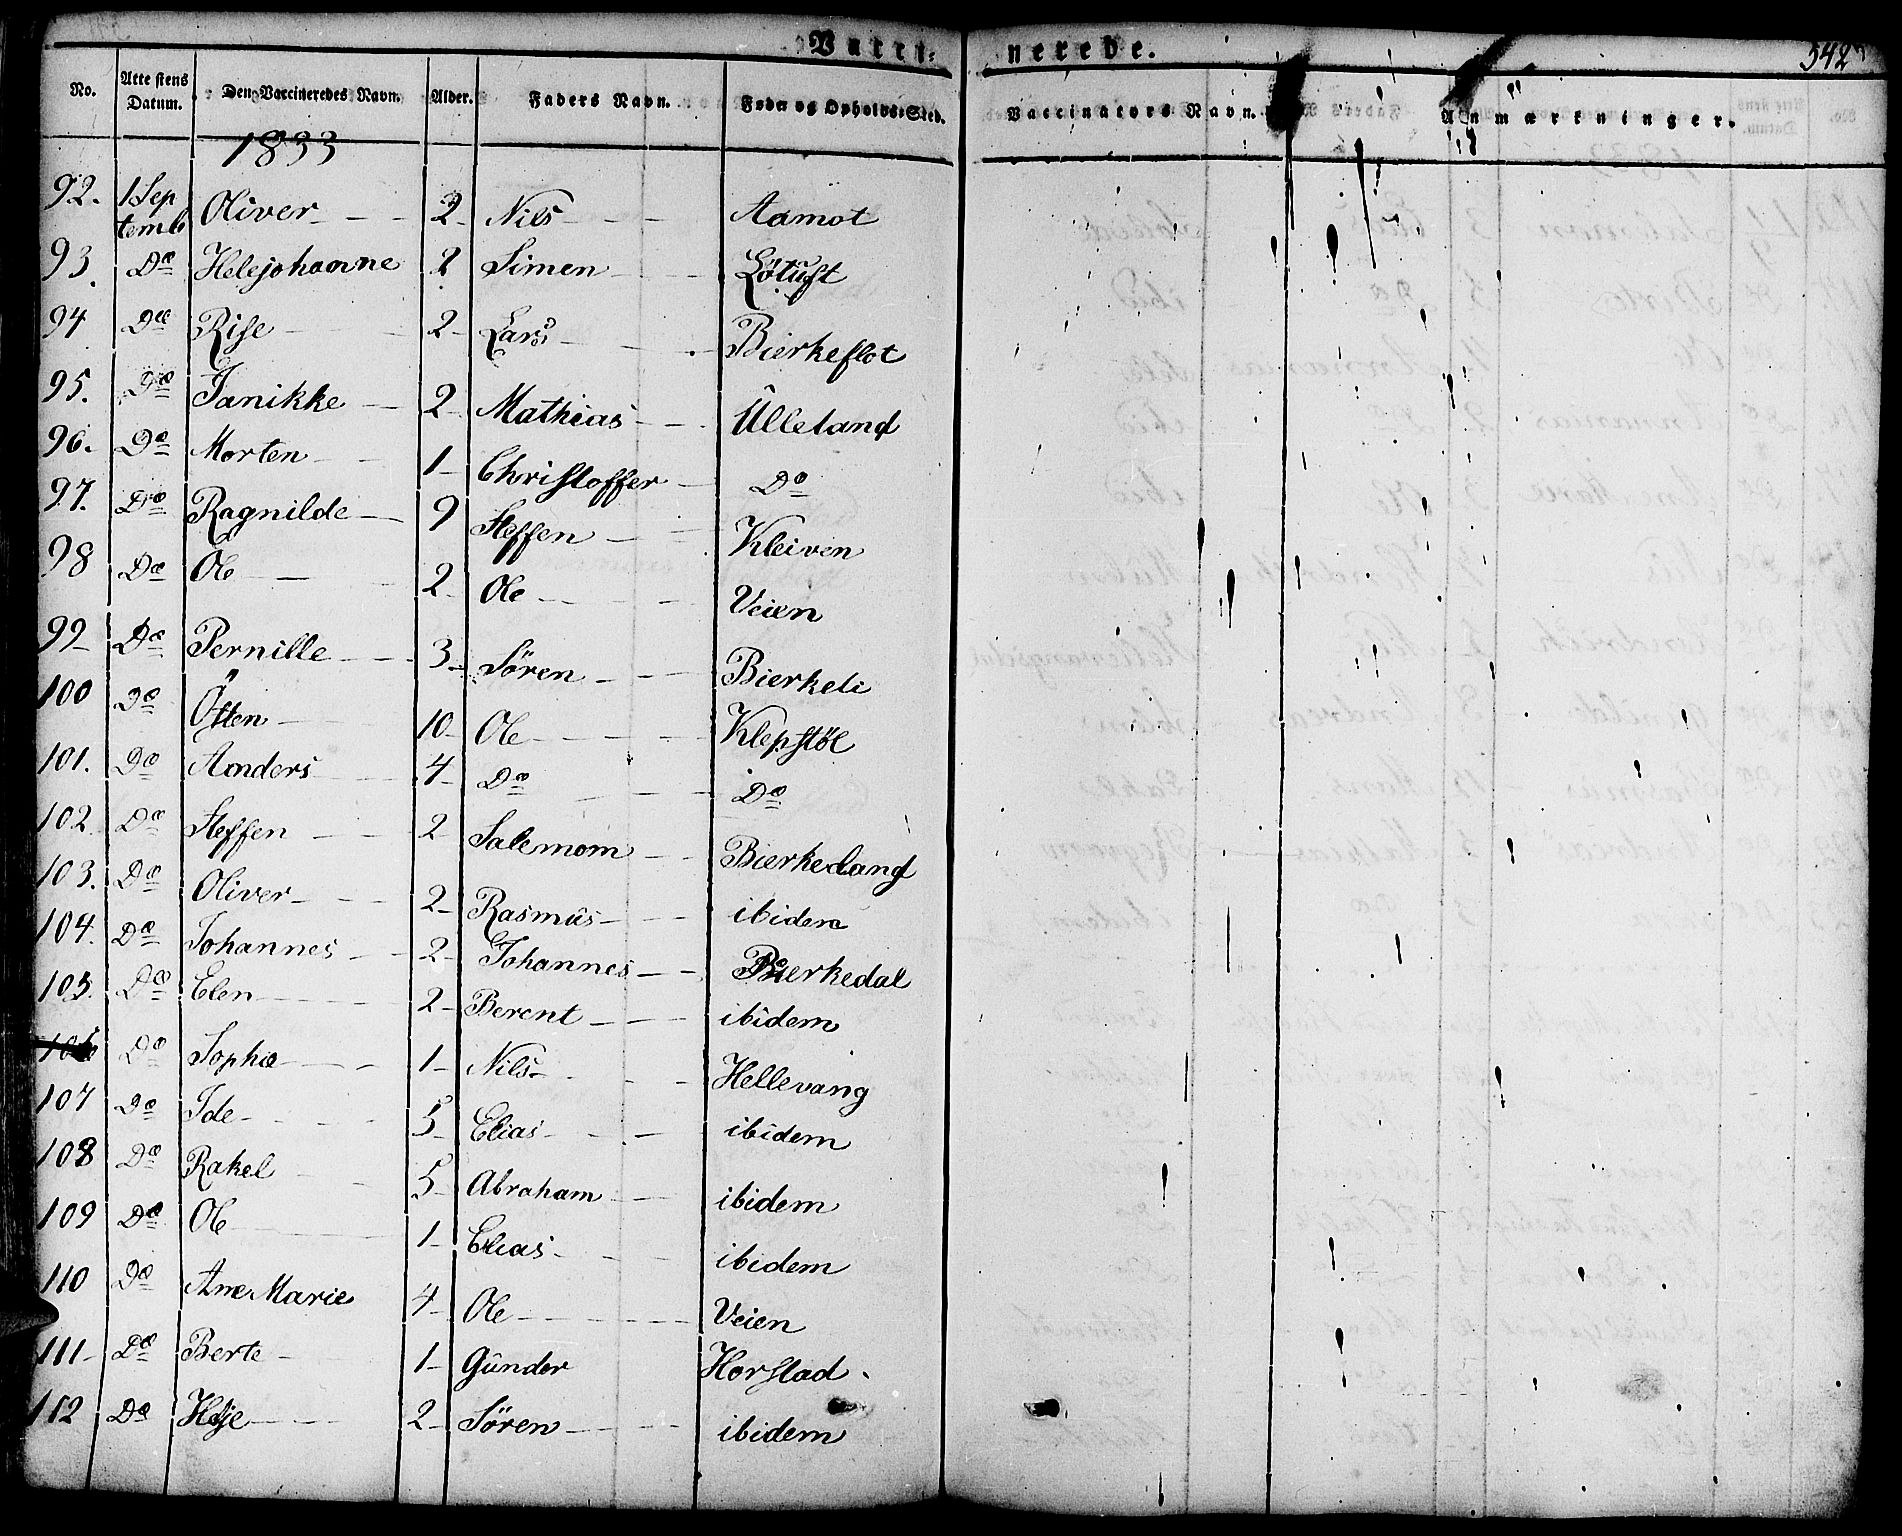 Vacci- nerede. 542
No. Attestens Datum. Den Vaccineredes Navn. Alder. Faders Navn. Føde og Opholds-Sted. Vaccinators Navn. Anmærkninger.
1833
92. 1 Sep temb Oliver 2 Nils Aamot
93. Do Helejohanne 2 Simen Løtuft
94 Do Rise 2 Lars Bierkeflot
95. Do Janikke 2 Mathias Ulleland
96. Do Morten 1 Christoffer Do
97. Do Ragnilde 9 Steffen Kleiven
98 Do Ole 2 Ole Veien
99 Do Pernille 3 Sören Bierkeli
100 Do Östen 10 Ole Klepstöl
101. Do Anders 4 Do Do
102 Do Steffen 2 Salemom Bierkeland
103. Do Oliver 2 Rasmus ibidem
104. Do Johannes 2 Johannes Bierkedal
105. Do Elen 2 Berent ibidem
106 Do Sophie 1 Nils Hellevang
107 Do Ide 5 Elias ibidem
108 Do Rakel 5 Abraham ibidem
109 Do Ole 1 Elias ibidem
110 Do Ane Marie 4 Ole Veien
111 Do Berte 1 Gunder Horstad
112 Do Helje 2 Sören ibidem